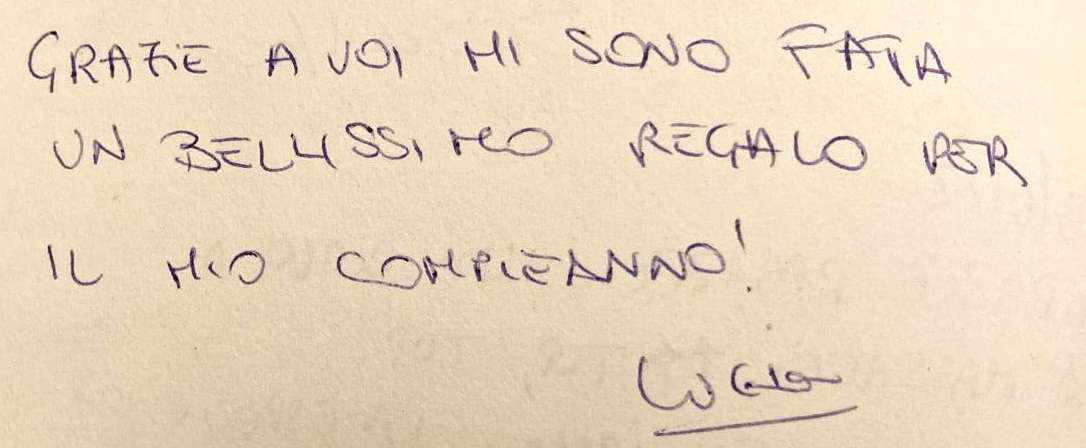 GRAZIE A VOI MI SONO FATTA
UN BELLISSIMO REGALO PER
IL MIO COMPLEANNO!